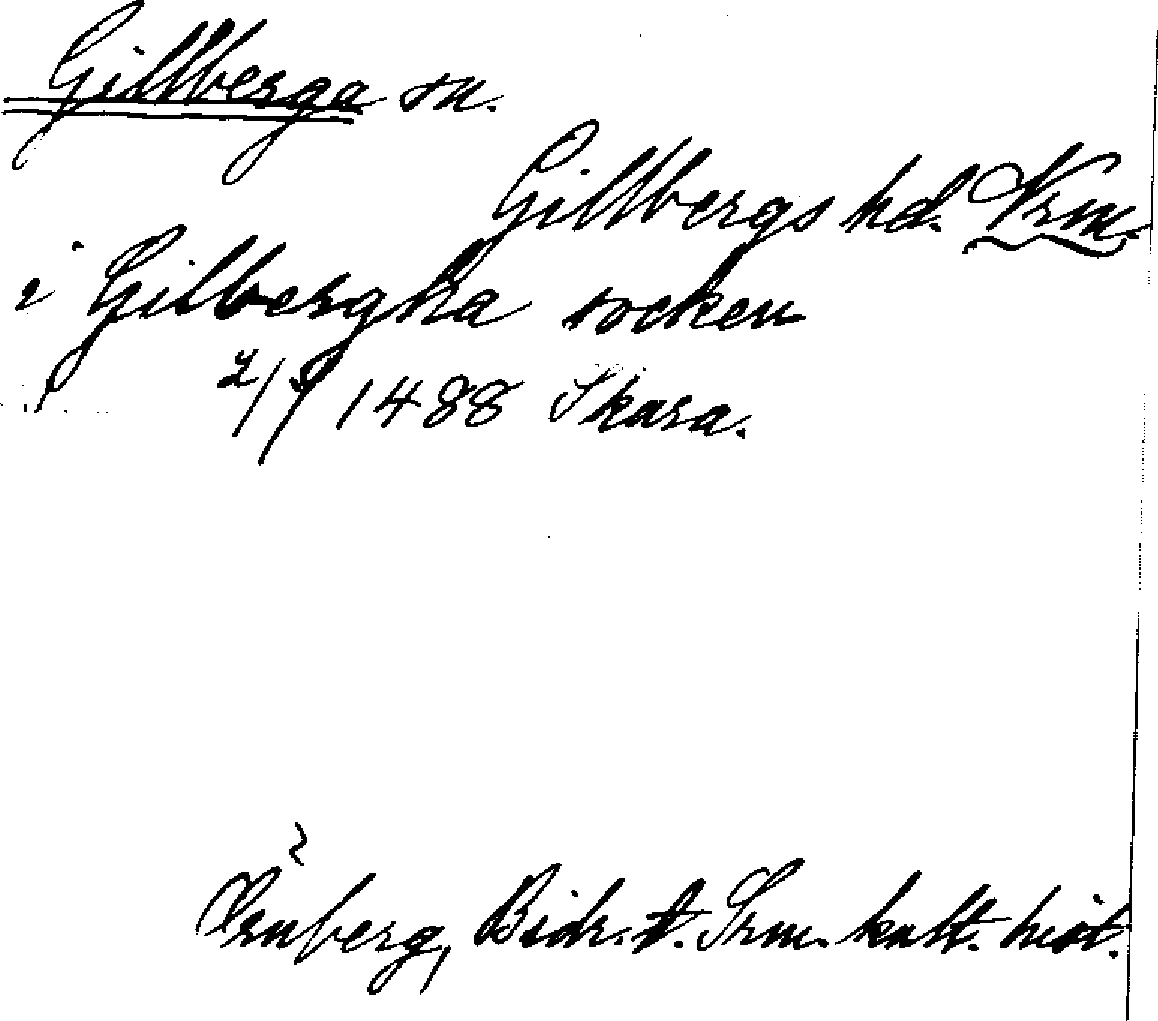 Gillberga sn.
Gillbergs hd. Vrm.
i Gilbergha socken
2/9 1488 Skara.
Örnberg, Bidr. t. Srm. kult. hist.